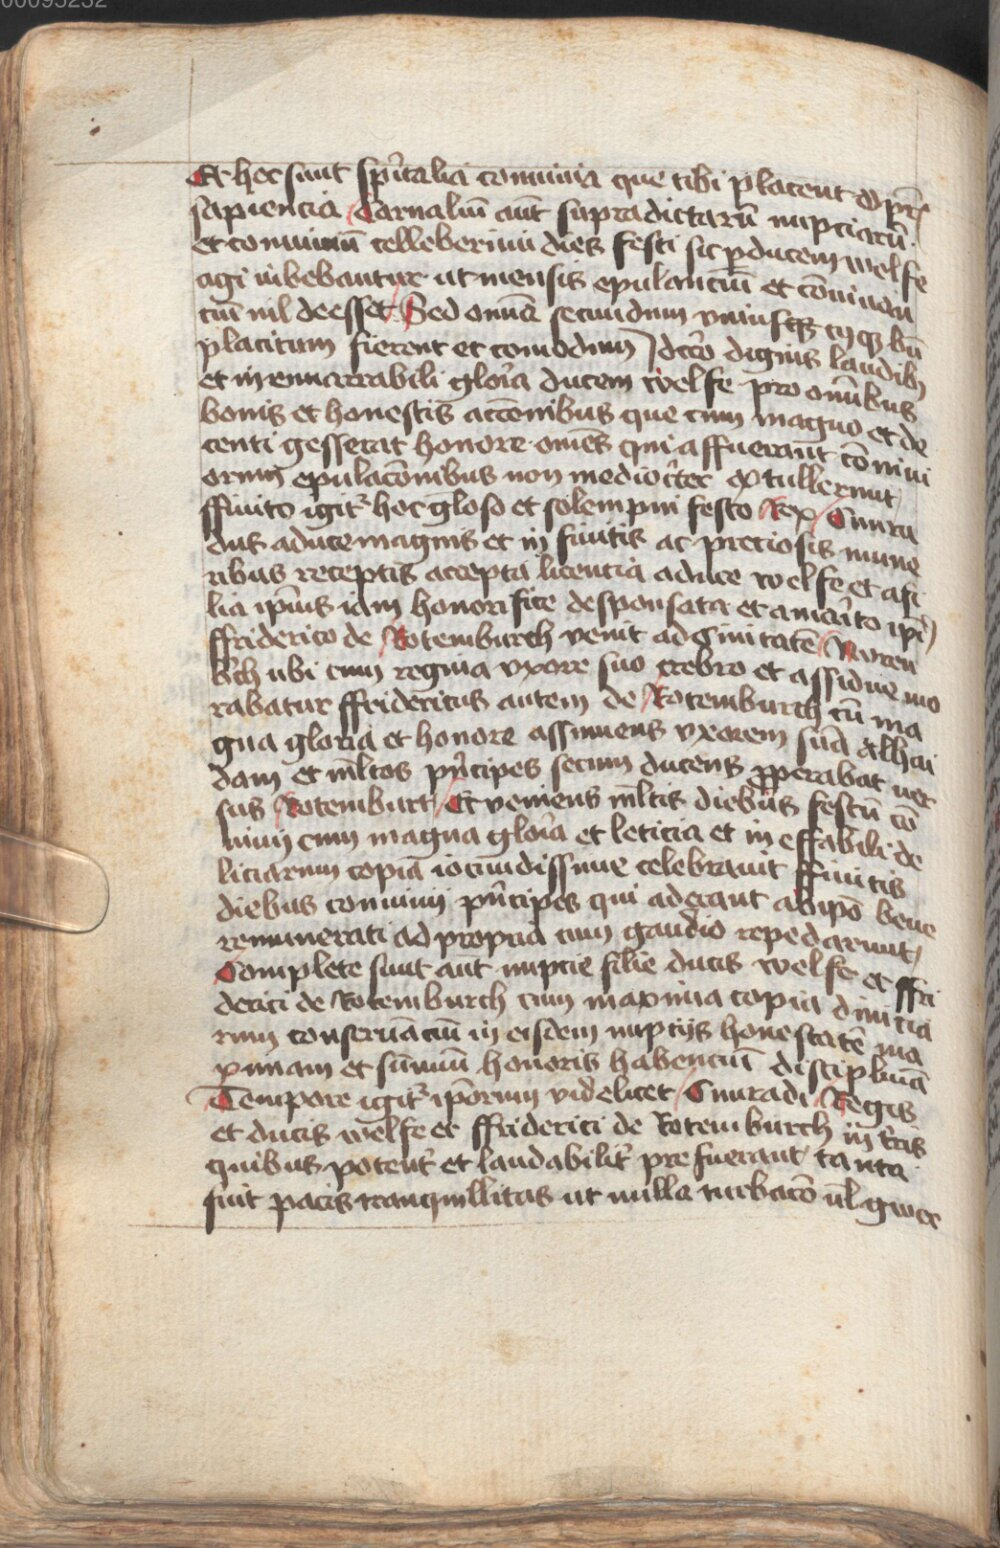 00095232
Et hec sunt spūtalia conuiuia que tibi placent
sapiencia Carnaliū aūt supradictarū nupciarū
et conuiuiū celleberimi dies festi sic p ducem welfe
agi iubebantur ut mensis epulanciū et
cū nil deesset Sed omnia secundum
placitum fierent et comodum dignis laudibꝫ
et inenarrabili gloīa ducem welfe pro omībus
bonis et honestis accōnibus que cum magno et de
centi gesserat honore omēs qui affuerant cōuiui
orum epulacōnibus non mediocʼter extullerunt
ffinito igitʼ hoc gloso et solempni festo Rex Cunra
dus a duce magnis et infinitis ac preciosis mune
ribus receptis accepta licencia a duce welfe et a fi
lia ipīus iam honorifice desponsata et a marito
ffriderico de Rotemburch venit ad Ciuitatē Nuren
bʼch ubi cum regina vxore suo crebro et assidue mo
rabatur ffridericus autem de Rotemburch cū ma
gna gloria et honore assumens vxorem suā
dam et mltos pʼncipes secum ducens pperabat uer
sus Rotemburc Et veniens mltis diebus festū cō
uiuij cum magna gloīa et leticia et ineffabili de
liciarum copia iocundissime celebrauit ffinitis
diebus conuiuij pʼncipes qui aderant ab ipō bene
remunerati ad propria cum gaudio repedarunt
Complete sunt aūt nupcie filie ducis welfe et ffri
derici de Rotemburch cum maxima copia diuicia
rum conseruanciū in eisdem nupcijs honestatē ma
ximam et sūmū honoris habenciū disciplinā
Tempore igitʼ ipōrum videlicet Cunradi Regis
et ducis welfe et ffriderici de Rotemburch in tʼris
quibus potentʼ et laudabilitʼ prefuerant tanta
fuit pacis tranquillitas ut nulla turbacō ul gwer